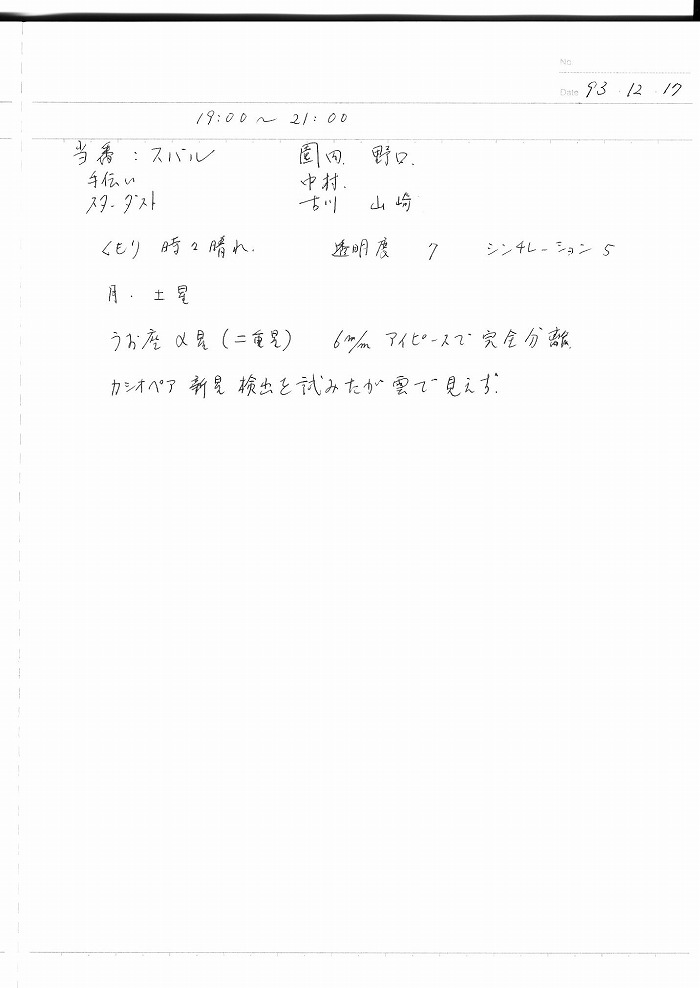 No.
Date 93・12・17
19:00 〜 21:00
当番:スバル 園田. 野口.
手伝い 中村.
スターダスト 古川 山崎
くもり 時々晴れ. 透明度 7 シンチレーション 5
月. 土星
うお座 α星 (二重星) 6m/m アイピースで完全分離.
カシオペア 新星 検出を試みたが雲で見えず.